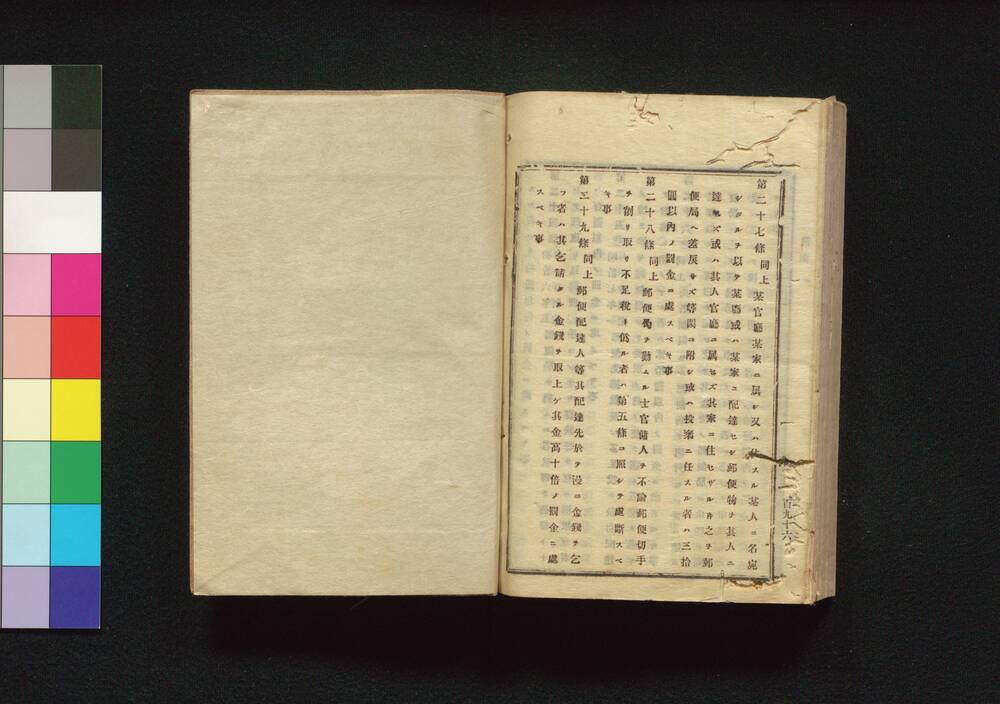 第二十七條同上某官廳某家ニ属シ又ハ住スル某人ニ名宛
シタルヲ以テ某廳或ハ某家ニ配達セシ郵便物ヲ其人ニ
達セズ或ハ其人官廳ニ属セズ其家ニ住セザル片之ヲ郵
便局ヘ差戻サズ等閑ニ附シ或ハ投棄ニ任スル者ハ三拾
圓以内ノ罰金ニ處スベキ事
第二十八條同上郵便局ヲ勤ムル士官傭人ヲ不論郵便切手
ヲ削リ取リ不足税ト僞ル者ハ第五條ニ照シテ處斷スベ
キ事
第二十九條同上郵便配達人等其配達先於テ漫ニ金錢ヲ乞
フ者ハ其乞請タル金錢ヲ取上ゲ其金高十倍ノ罰金ニ處
スベキ事
百九十六